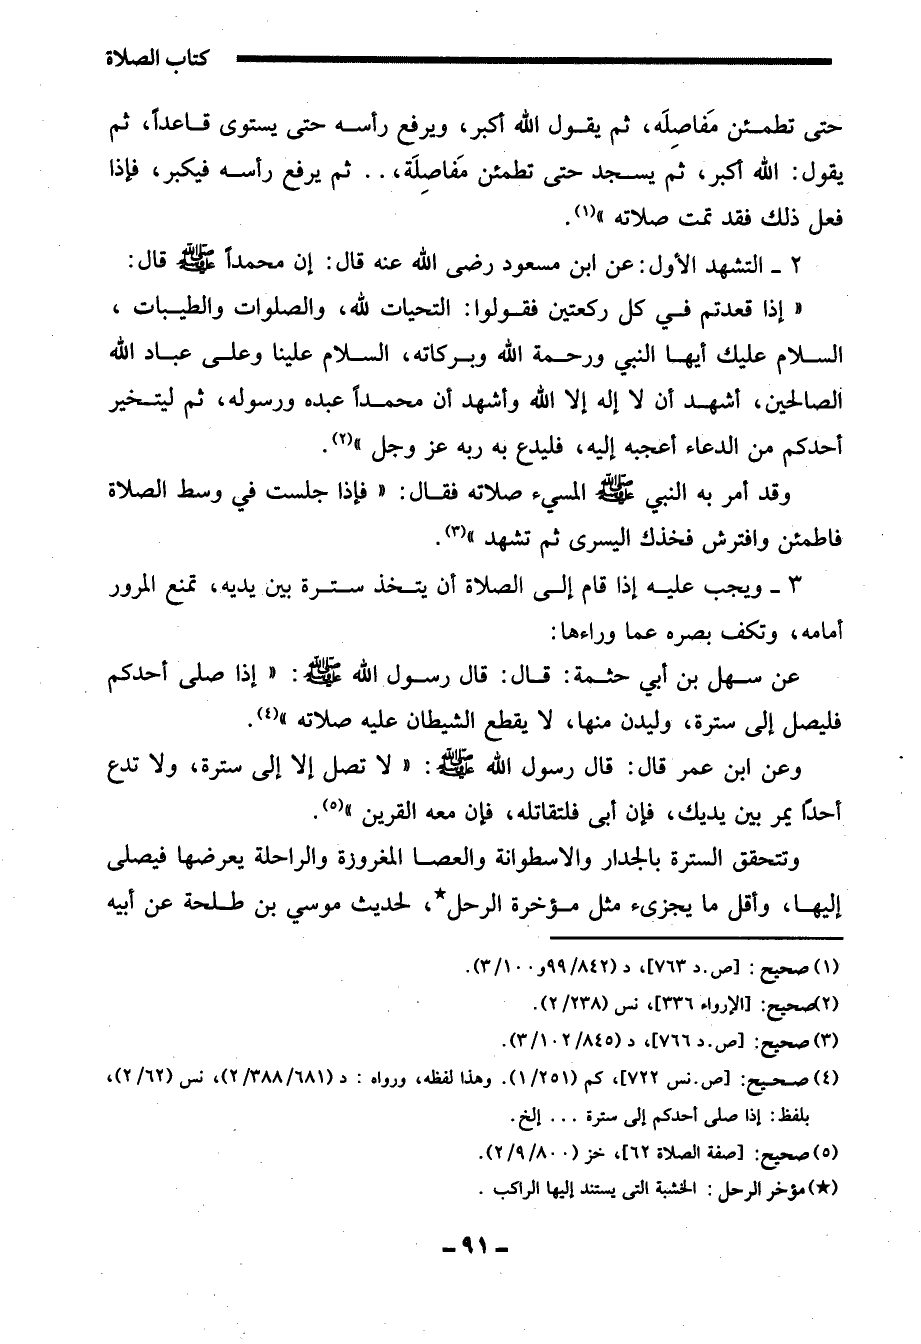 كتاب الصلاة
حتى تطمئن مَفاصِلَه، ثم يقول الله أكبر، ويرفع رأسه حتى يستوى قاعداً، ثم
يقول: الله أكبر، ثم يسجد حتى تطمئن مَفاصِلَة،.. ثم يرفع رأسه فيكبر، فإذا
فعل ذلك فقد تمت صلاته »(١).
٢ ـ التشهد الأول: عن ابن مسعود رضى الله عنه قال: إن محمداً ﷺ قال:
« إذا قعدتم في كل ركعتين فقولوا: التحيات لله، والصلوات والطيبات ،
السلام عليك أيها النبي ورحمة الله وبركاته، السلام علينا وعلى عباد الله
الصالحين، أشهد أن لا إله إلا الله وأشهد أن محمداً عبده ورسوله، ثم ليتخير
أحدكم من الدعاء أعجبه إليه، فليدع به ربه عز وجل »(٢).
وقد أمر به النبي ﷺ المسيء صلاته فقال: « فإذا جلست في وسط الصلاة
فاطمئن وافترش فخذك اليسرى ثم تشهد »(٣).
٣ ـ ويجب عليه إذا قام إلى الصلاة أن يتخذ سترة بين يديه، تمنع المرور
أمامه، وتكف بصره عما وراءها:
عن سهل بن أبي حثمة: قال: قال رسول الله ﷺ: « إذا صلى أحدكم
فليصل إلى سترة، وليدن منها، لا يقطع الشيطان عليه صلاته »(٤).
وعن ابن عمر قال: قال رسول الله ﷺ: « لا تصل إلا إلى سترة، ولا تدع
أحدًا يمر بين يديك، فإن أبى فلتقاتله، فإن معه القرين »(٥).
وتتحقق السترة بالجدار والاسطوانة والعصا المغروزة والراحلة يعرضها فيصلى
إليها، وأقل ما يجزىء مثل مؤخرة الرحل★، لحديث موسي بن طلحة عن أبيه
(١) صحيح : [ص.د ٧٦٣]، د (٨٤٢/ ٩٩و١٠٠/ ٣).
(٢)صحيح: [الإرواء ٣٣٦]، نس (٢٣٨/ ٢).
(٣) صحيح: [ص.د ٧٦٦]، د (٨٤٥/ ١٠٢/ ٣).
(٤) صحيح: [ص.نس ٧٢٢]، كم (٢٥١/ ١). وهذا لفظه، ورواه : د (٦٨١/ ٣٨٨/ ٢)، نس (٦٢/ ٢)،
بلفظ: إذا صلى أحدكم إلى سترة ... إلخ.
(٥) صحيح: [صفة الصلاة ٦٢]، خز (٨٠٠/ ٩/ ٢).
(★)مؤخر الرحل : الخشبة التى يستند إليها الراكب .
ـ ٩١ ـ